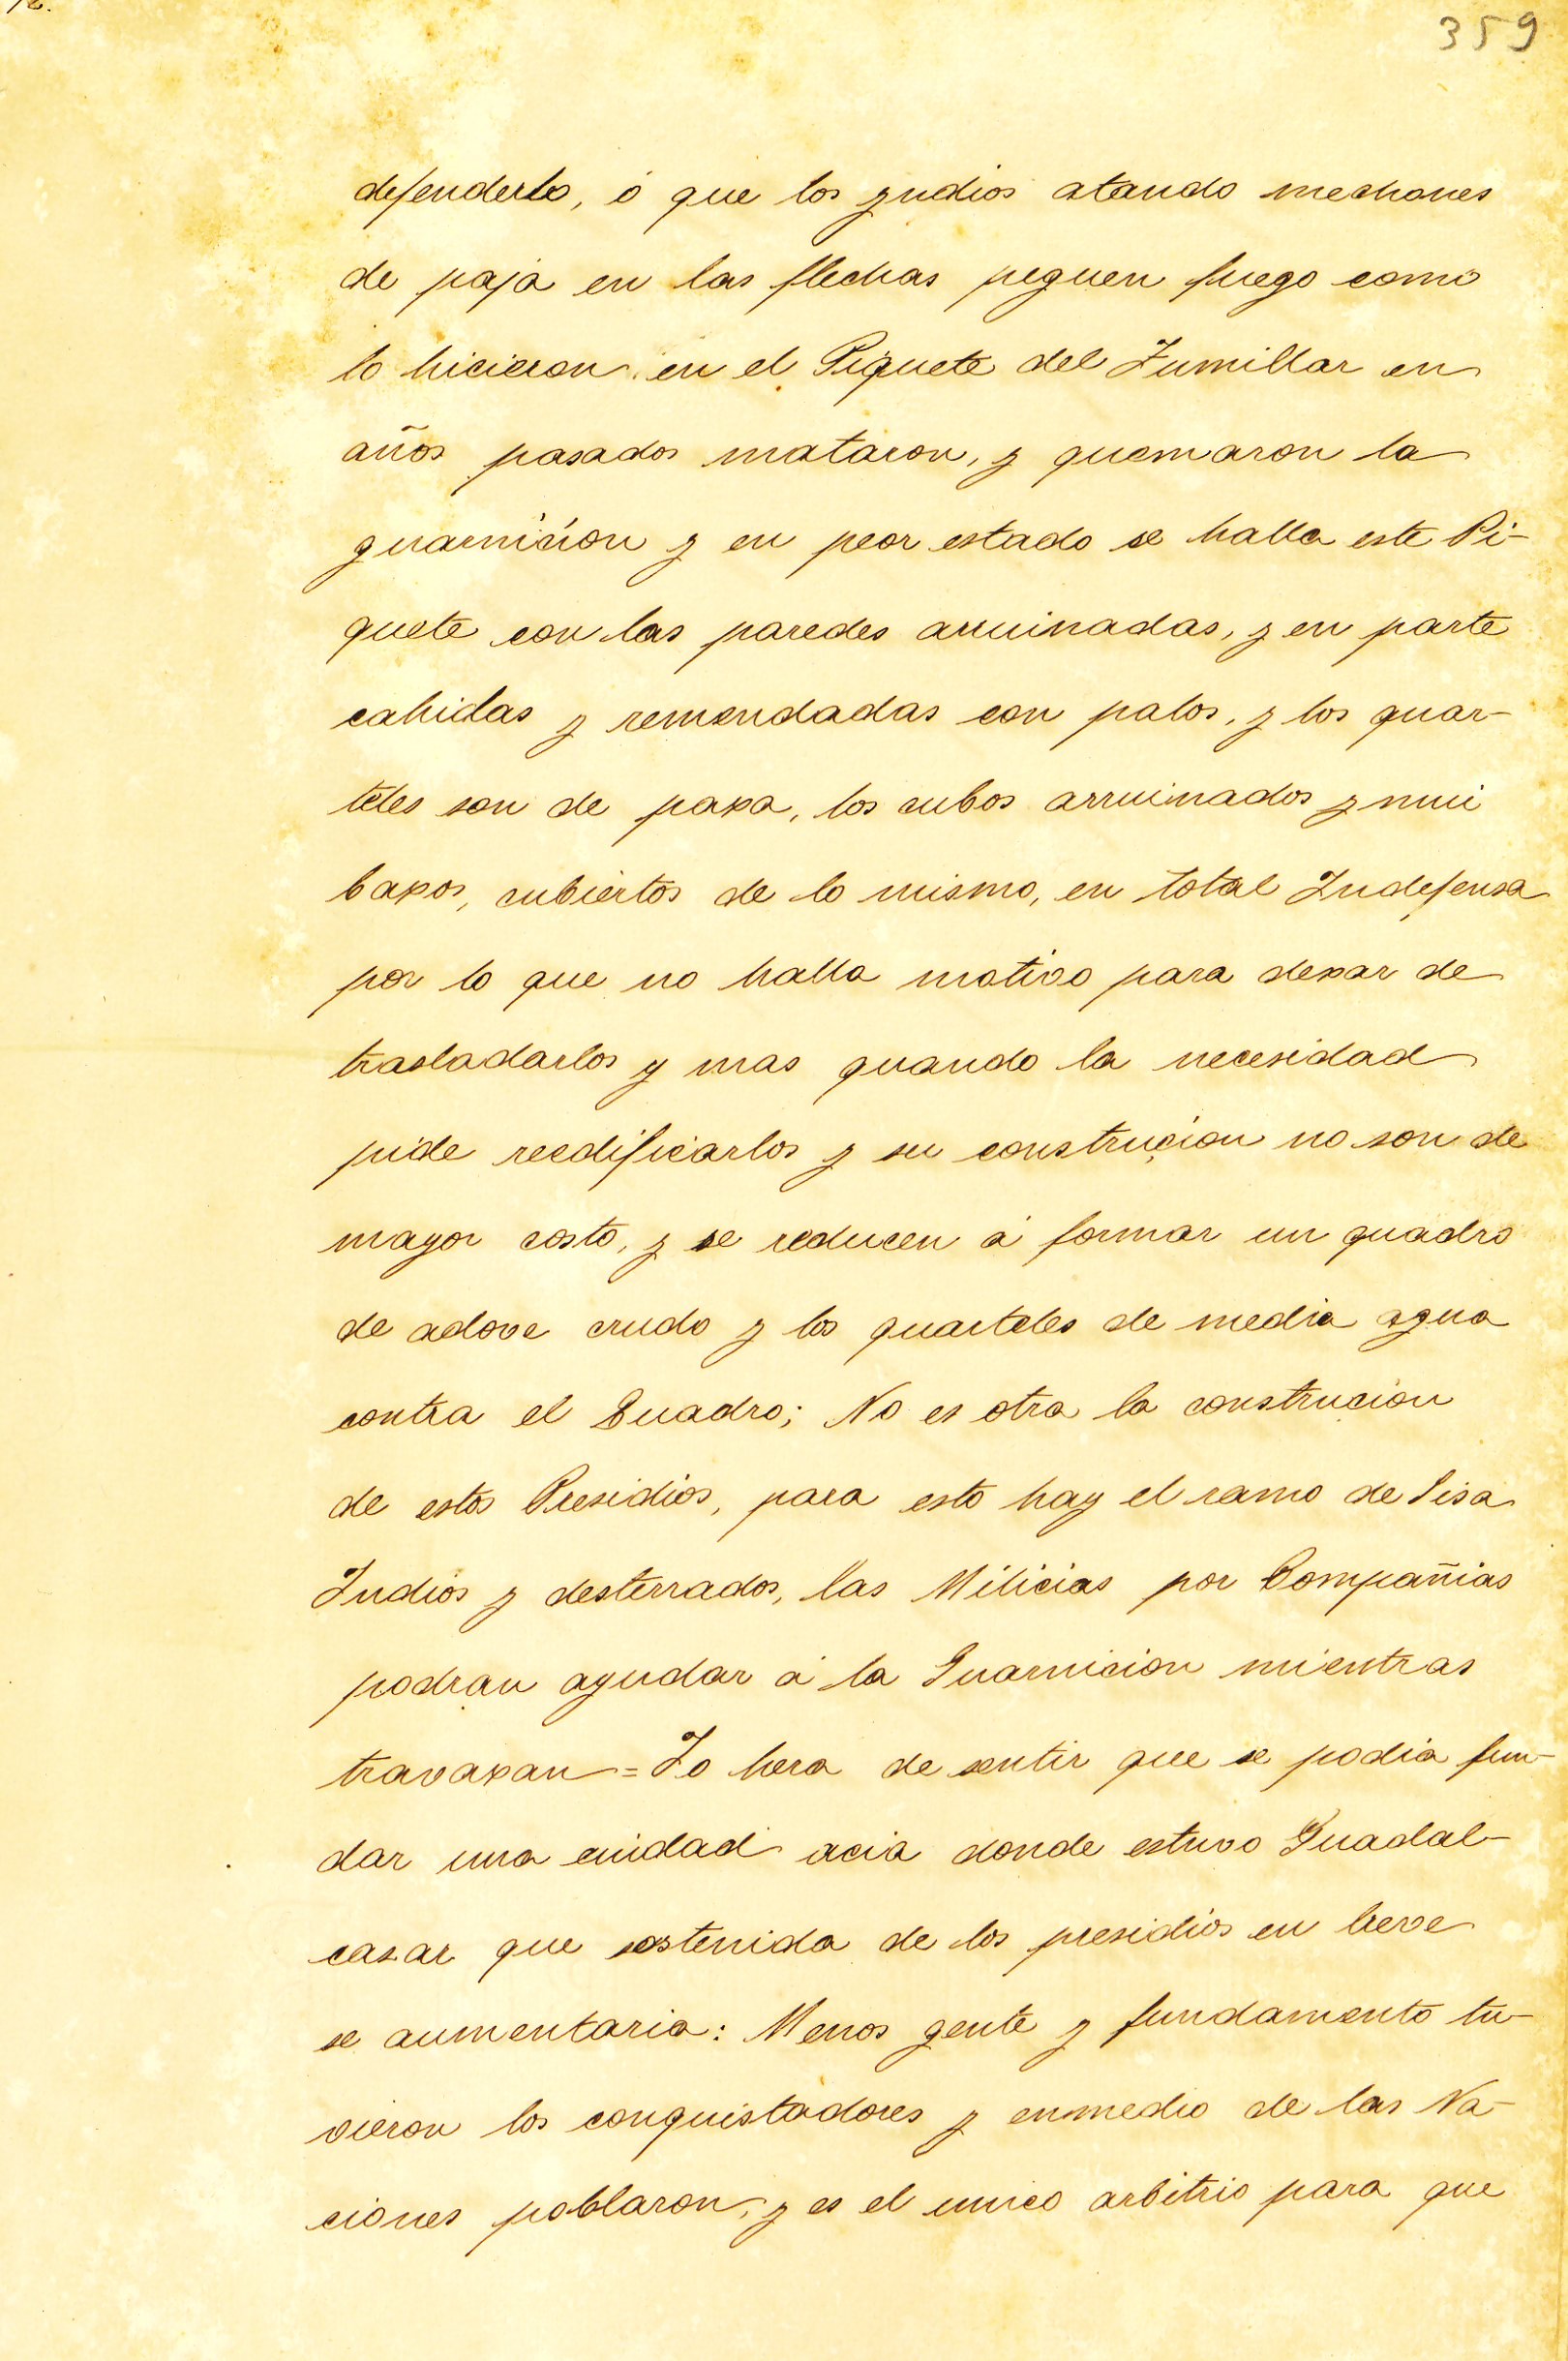 359
defenderlo, ó que los yndios atando mechones
de paja en las flechas peguen fuego como
lo hicieron en el Piquete del Zumillar en
años pasados mataron, y quemaron la
guarnicion y en peor estado se halla este Pi-
quete con las paredes arruinadas, y en parte
cahidas y remendadas con palos, y los quar-
teles son de paxa, los cubos arruinados y mui
baxos, cubiertos de lo mismo, en total Indefensa
por lo que no halla motivo para dexar de
trasladarlos y mas quando la necesidad
pide reedificarlos y su construcion no son de
mayor costo, y se reducen á formar un quadro
de adove crudo y los quarteles de media agua
contra el Quadro; No es otra la construcion
de estos Presidios, para esto hay el ramo de Sisa
Indios y desterrados, las Milicias por Compañias
podran ayudar á la Guarnicion mientras
travaxan = Yo hera de sentir que se podia fun-
dar una ciudad acia donde estuvo Guadal-
cazar que sostenida de los presidios en breve
se aumentaria: Menos gente y fundamento tu-
vieron los conquistadores y enmedio de las Na-
ciones poblaron, y es el unico arbitrio para que